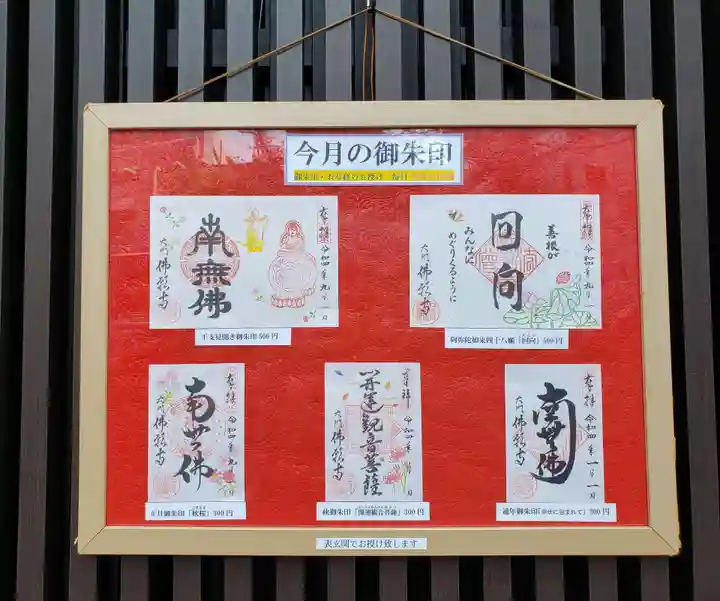 今月の御朱印
奉拝
令和四年九月一日
南無佛
大門 佛願寺
干支見開き御朱印500円
奉拝
令和四年九月一日
善根が
回向
みんなに
めぐりくるように
大門 佛願寺
阿弥陀如来四十八願「回向」500円
奉拝
令和四年九月
南無佛
大門 佛願寺
九月御朱印「秋桜」300円
令和四年
開運観音菩薩
大門 佛願寺
秋御朱印「開運観音菩薩」300円
奉拝
令和四年一月一日
南無佛
大門 佛願寺
通年御朱印(幸せに包まれて)300円
表玄関でお授け致します